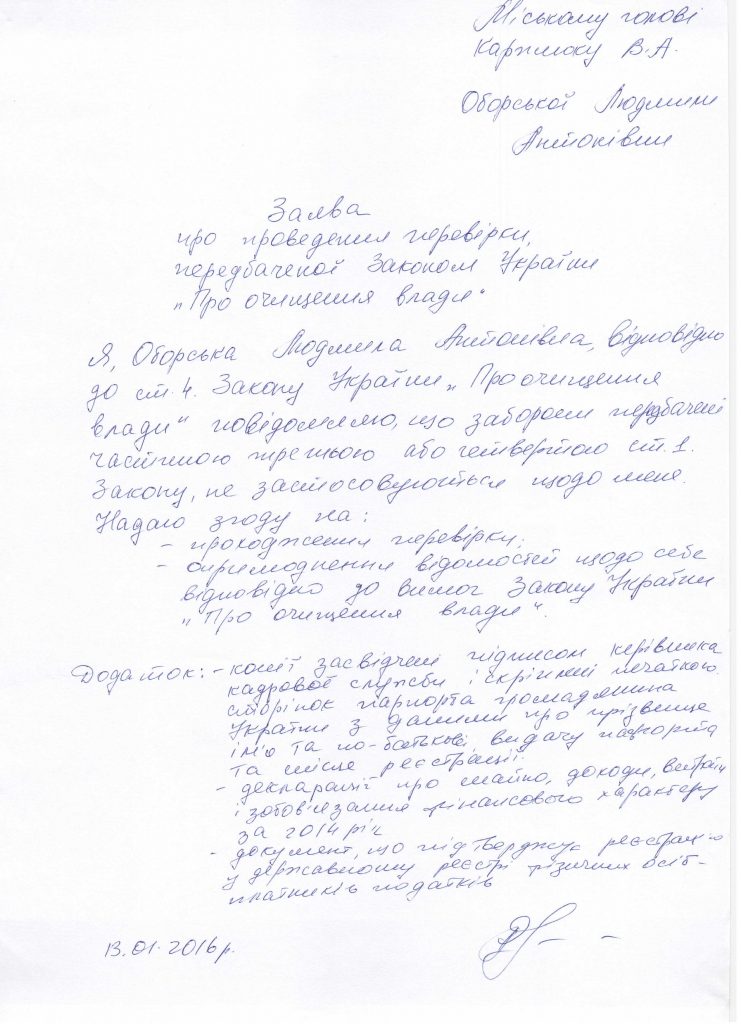 Міському голові
Каржмоку В.А.
Оборської Людмили
Антонівни
Заява
про проведення перевірки,
передбаченої Законом України
„Про очищення влади"
Я, Оборська Людмила Антонівна, відповідно
до ст.4. Закону України „Про очищення
влади" повідомляю, що заборони передбачені
частиною третьою або четвертою ст.1.
Закону, не застосовуються щодо мене.
Надаю згоду на:
- проходження перевірки;
- оприлюднення відомостей щодо себе
відповідно до вимог Закону України
„Про очищення влади".
Додаток: - копії засвідчені підписом керівника
кадрової служби і скріплені печаткою
сторінок паспорта громадянина
України з даними про прізвище
ім'я та по-батькові, видачу паспорта
та місце реєстрації.
- декларації про майно, доходи, витрати
і зобов'язання фінансового характеру
за 2014 рік
- документ, що підтверджує реєстрац-ю
у державному реєстрі фізичних осіб-
платників податків
13.01.2016р.